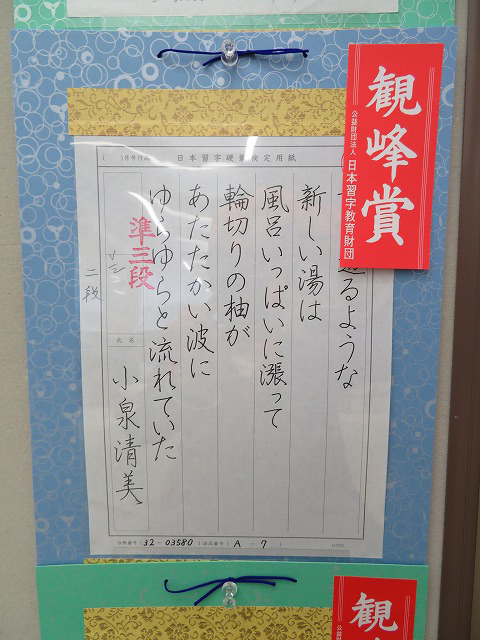 観峰賞
公益財団法人 日本習字教育財団
日本習字硬筆検定用紙
るような
新しい湯は
風呂いっぱいに漲って
輪切りの柚が
あたたかい波に
ゆらゆらと流れていた
準三段
二段
氏名
小泉清美
32-03580
A-7
観